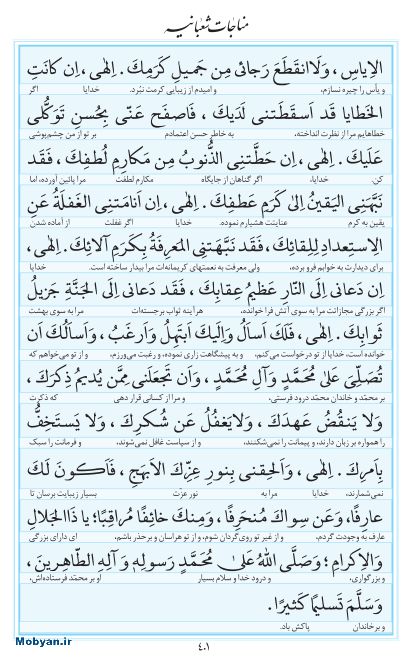 مناجات شعبانیه
الاِیاسِ ، وَلَا انقَطَعَ رَجائی مِن جَمیلِ کَرَمِكَ . اِلهٰی ، اِن کانَتِ
و یأس را چیره نسازم، و امیدم از زیبایی کرمت نبُرد. خدایا اگر
الخَطایا قَد اَسقَطَتنی لَدَیكَ ، فَاصفَح عَنّی بِحُسنِ تَوَکُّلی
خطاهایم مرا از نظرت انداخته، به خاطر حسن اعتمادم بر تو از من چشم‌پوشی
عَلَیكَ . اِلهٰی ، اِن حَطَّتنِی الذُّنوبُ مِن مَکارِمِ لُطفِكَ ، فَقَد
کن. خدایا، اگر گناهان از جایگاه مکارم لطفت مرا پائین آورده، اما
نَبَّهَنِی الیَقینُ اِلیٰ کَرَمِ عَطفِكَ . اِلهٰی ، اِن اَنامَتنِی الغَفلَةُ عَنِ
یقین به کرم عنایتت هشیارم نموده. خدایا اگر غفلت از آماده شدن
الاِستعدادِ لِلِقائِكَ ، فَقَد نَبَّهَتنِی المَعرِفَةُ بِکَرَمِ آلائِكَ . اِلهٰی ،
برای دیدارت به خوابم فرو برده، ولی معرفت به نعمتهای کریمانه‌ات مرا بیدار ساخته است. خدایا
اِن دَعانی اِلَی النّارِ عَظیمُ عِقابِكَ ، فَقَد دَعانی اِلَی الجَنَّةِ جَزیلُ
اگر بزرگی مجازاتت مرا به سوی آتش فرا خوانده، هر آینه ثواب برجسته‌ات مرا به سوی بهشت
ثَوابِكَ . اِلهٰی ، فَلَكَ اَسأَلُ وَاِلَیكَ اَبتَهِلُ وَاَرغَبُ ، وَاَسأَلُكَ اَن
خوانده است، خدایا از تو درخواست می‌کنم، و به پیشگاهت زاری نموده، و رغبت می‌ورزم، و از تو می‌خواهم که
تُصَلِّیَ عَلیٰ مُحَمَّدٍ وَآلِ مُحَمَّدٍ ، وَاَن تَجعَلَنی مِمَّن یُدیمُ ذِکرَكَ ،
بر محمّد و خاندان محمّد درود فرستی، و مرا از کسانی قرار دهی که ذکرت
وَلا یَنقُضُ عَهدَكَ ، وَلایَغفُلُ عَن شُکرِكَ ، وَلا یَستَخِفُّ
را همواره بر زبان دارند، و پیمانت را نمی‌شکنند، و از سپاست غافل نمی‌شوند، و فرمانت را سبک
بِاَمرِكَ . اِلهٰی ، وَاَلحِقنی بِنورِ عِزِّكَ الاَبهَجِ ، فَاَکونَ لَكَ
نمی‌شمارند، خدایا مرا به نور عزّت بسیار زیبایت برسان تا
عارِفًا، وَعَن سِواكَ مُنحَرِفًا ، وَمِنكَ خائِفًا مُراقِبًا؛ یا ذَا الجَلالِ
عارف به وجودت گردم، و از غیر تو روی‌گردان شوم، و از تو هراسان و برحذر باشم، ای دارای بزرگی
وَالاِکرامِ ؛ وَصَلَّی اللهُ عَلیٰ مُحَمَّدٍ رَسولِهِ وَ آلِهِ الطّاهِرینَ ،
و بزرگواری، و درود خدا و سلام بسیار او بر محمّد فرستاده‌اش،
وَسَلَّمَ تَسلیمًا کَثیرًا .
و بر خاندان پاکش باد.
٤٠١
Mobyan.ir